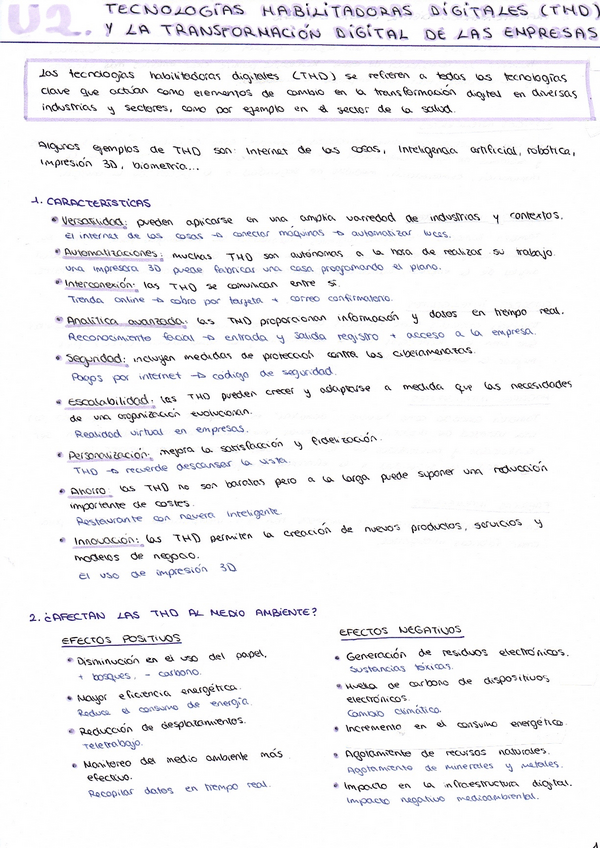 U2. TECNOLOGÍAS HABILITADORAS DIGITALES (THD)
Y LA TRANSFORMACIÓN DIGITAL DE LAS EMPRESAS
Las tecnologías habilitadoras digitales (THD) se refieren a todas las tecnologías
clave que actúan como elementos de cambio en la transformación digital en diversas
industrias y sectores, como por ejemplo en el sector de la salud.
Algunos ejemplos de THD son: Internet de las cosas, Inteligencia artificial, robótica,
impresión 3D, biometría...
1. CARACTERÍSTICAS
• Versatilidad: pueden aplicarse en una amplia variedad de industrias y contextos.
El internet de las cosas → conectar máquinas → automatizar luces.
• Automatizaciones: muchas THD son autónomas a la hora de realizar su trabajo.
Una impresora 3D puede fabricar una casa programando el plano.
• Interconexión: las THD se comunican entre sí.
Tienda online → cobro por tarjeta + correo confirmatorio.
• Analítica avanzada: las THD proporcionan información y datos en tiempo real.
Reconocimiento facial → entrada y salida registro + acceso a la empresa.
• Seguridad: incluyen medidas de protección contra las ciberamenazas.
Pagos por internet → codigo de seguridad.
• Escalabilidad: las THD pueden crecer y adaptarse a medida que las necesidades
de una organización evolucionan.
Realidad virtual en empresas.
• Personalización: mejora la satisfacción y fidelización.
THD → recuerde descansar la vista.
• Ahorro: las THD no son baratas pero a la larga puede suponer una reducción
importante de costes.
Restaurante con nevera inteligente
• Innovación: las THD permiten la creación de nuevos productos, servicios y
modelos de negocio.
El uso de impresión 3D
2. ¿AFECTAN LAS THD AL MEDIO AMBIENTE?
EFECTOS POSITIVOS
• Disminución en el uso del papel.
+ bosques, - carbono.
• Mayor eficiencia energética.
Reduce el consumo de energía.
• Reducción de desplazamientos.
Teletrabajo.
• Monitoreo del medio ambiente más
efectivo.
Recopilar datos en tiempo real.
EFECTOS NEGATIVOS
• Generación de residuos electrónicos.
Sustancias tóxicas.
• Huella de carbono de dispositivos
electrónicos.
Cambio climático.
• Incremento en el consumo energético.
• Agotamiento de recursos naturales.
Agotamiento de minerales y metales.
• Impacto en la infraestructura digital.
Impacto negativo medioambiental.